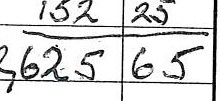 152 25
2,625 65